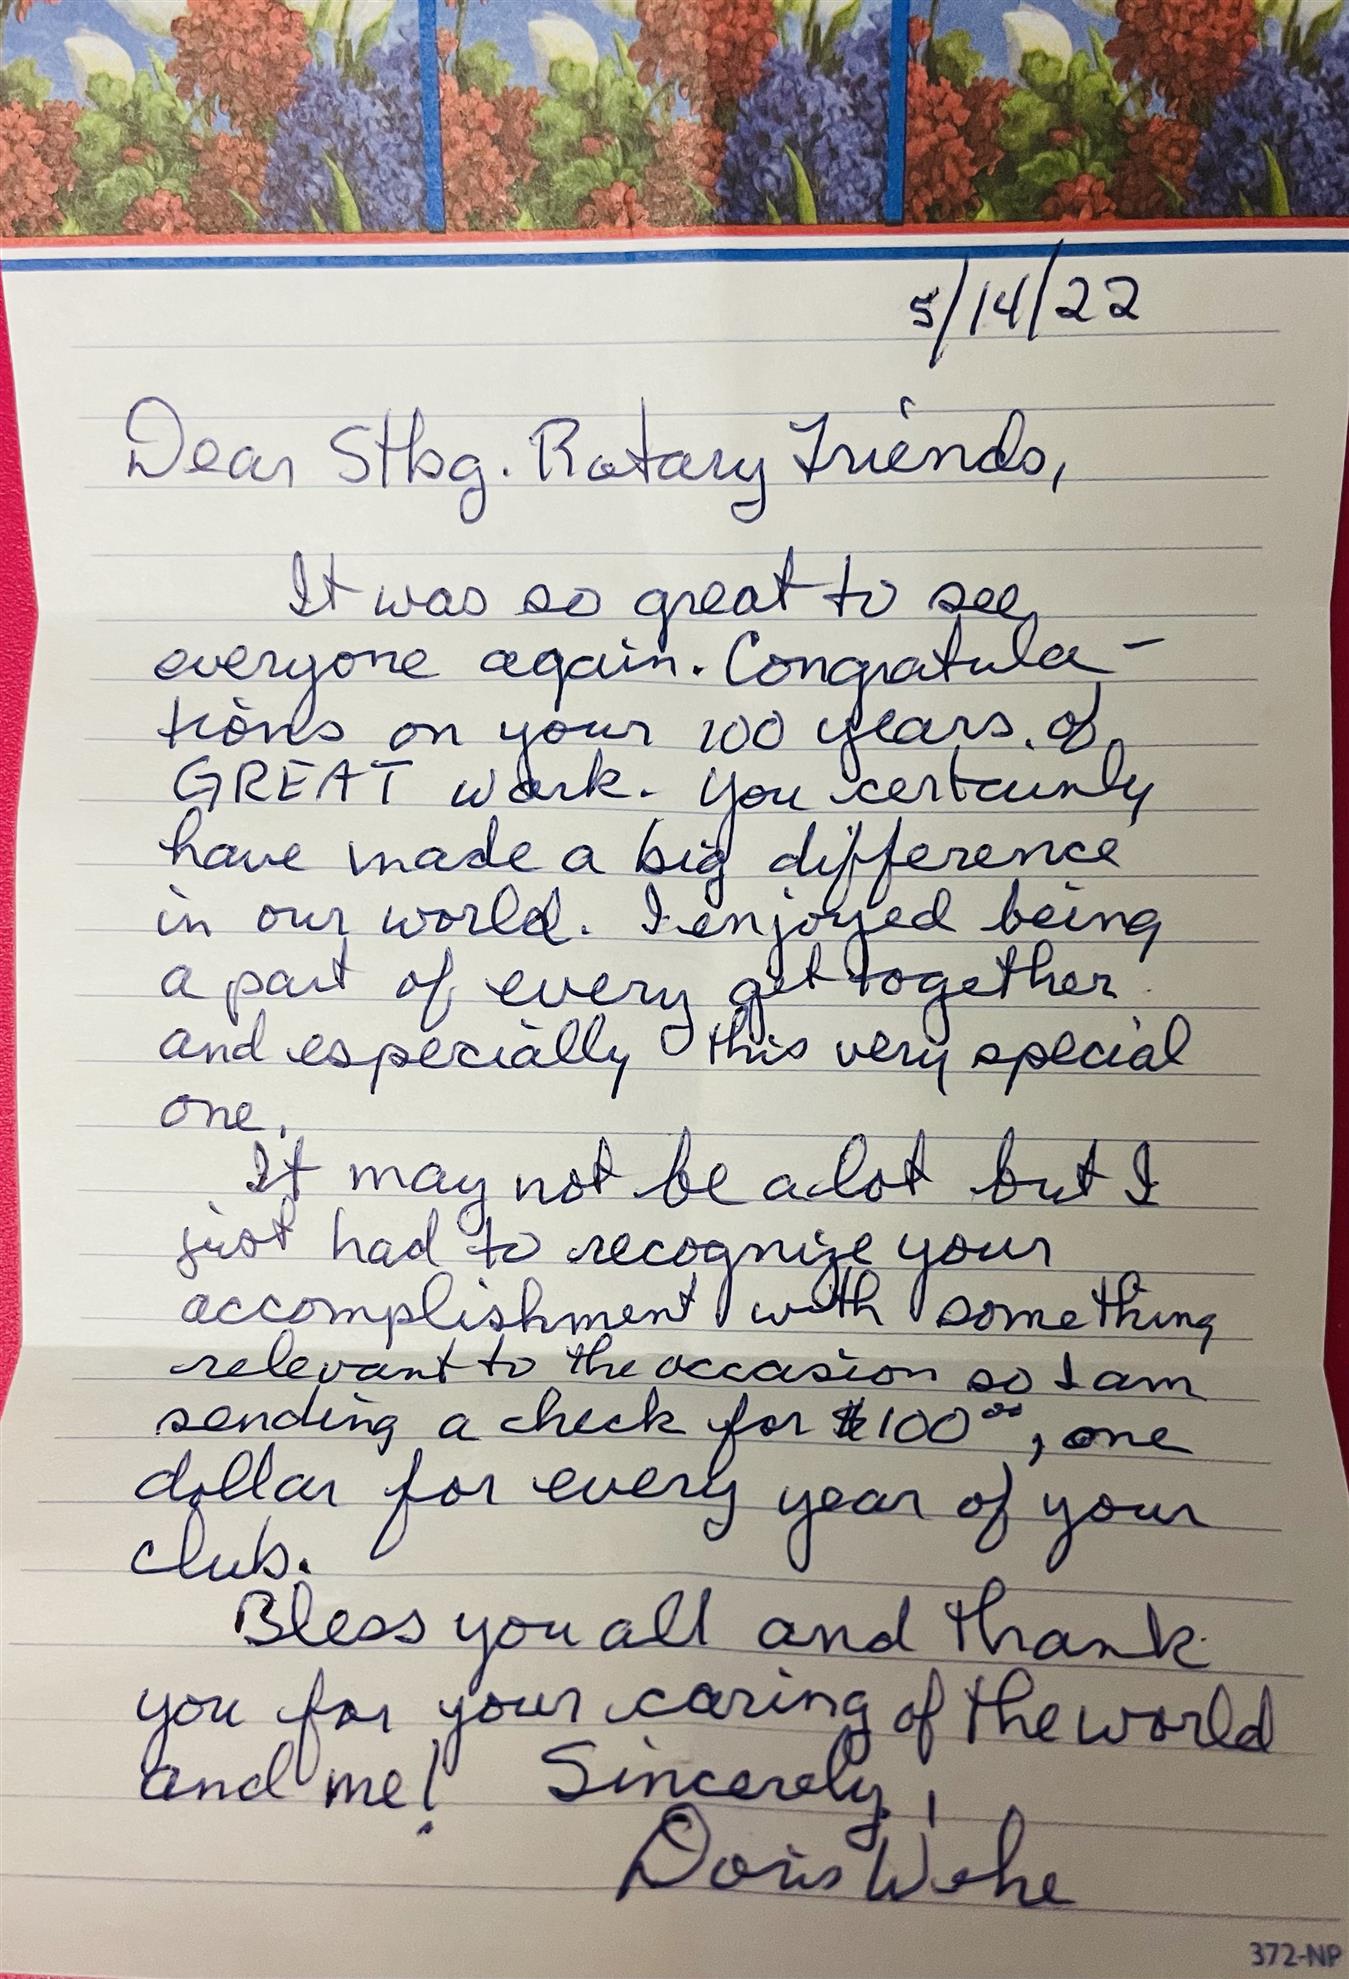 5/14/22
Dear Stbg. Rotary Friends,
It was so great to see
everyone again. Congratula-
tions on your 100 years of
GREAT work. You certainly
have made a big difference
in our world. I enjoyed being
a part of every get together
and especially this very special
one.
It may not be a lot but I
just had to recognize your
accomplishment with something
relevant to the occasion so I am
sending a check for $100.00, one
dollar for every year of your
club.
Bless you all and thank
you for your caring of the world
and me! Sincerely,
Doris Wehe
372-NP